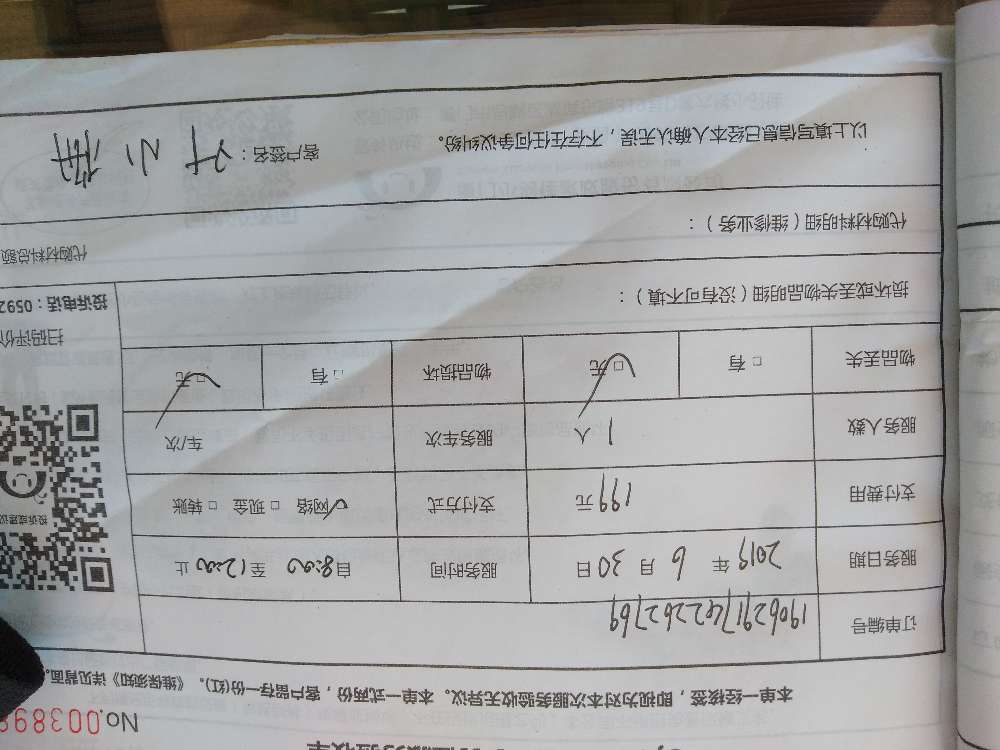 验收单
No.003898
本单一经核签，即视为对本次服务验收无异议。本单一式两份，客户留存一份(红)。《维保须知》详见背面。
订单编号 1906291742262769
服务日期 2019 年 6 月 30 日 服务时间 自8:00 至 12:00 止
支付费用 199 元 支付方式 ☑网络 □ 现金 □ 转账
服务人数 1 人 服务车次 车/次
物品丢失 □ 有 ☑ 无 物品损坏 □ 有 ☑ 无
投诉或建议
扫码评价
投诉电话：0592
损坏或丢失物品明细（没有可不填）：
代购材料明细（维修业务）：
代购材料总额
以上填写信息已经本人确认无误，不存在任何争议纠纷。
客户签名：